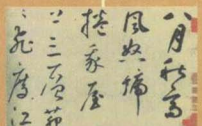 八月秋高
風怒號
捲我屋
上三重茅
飛度江